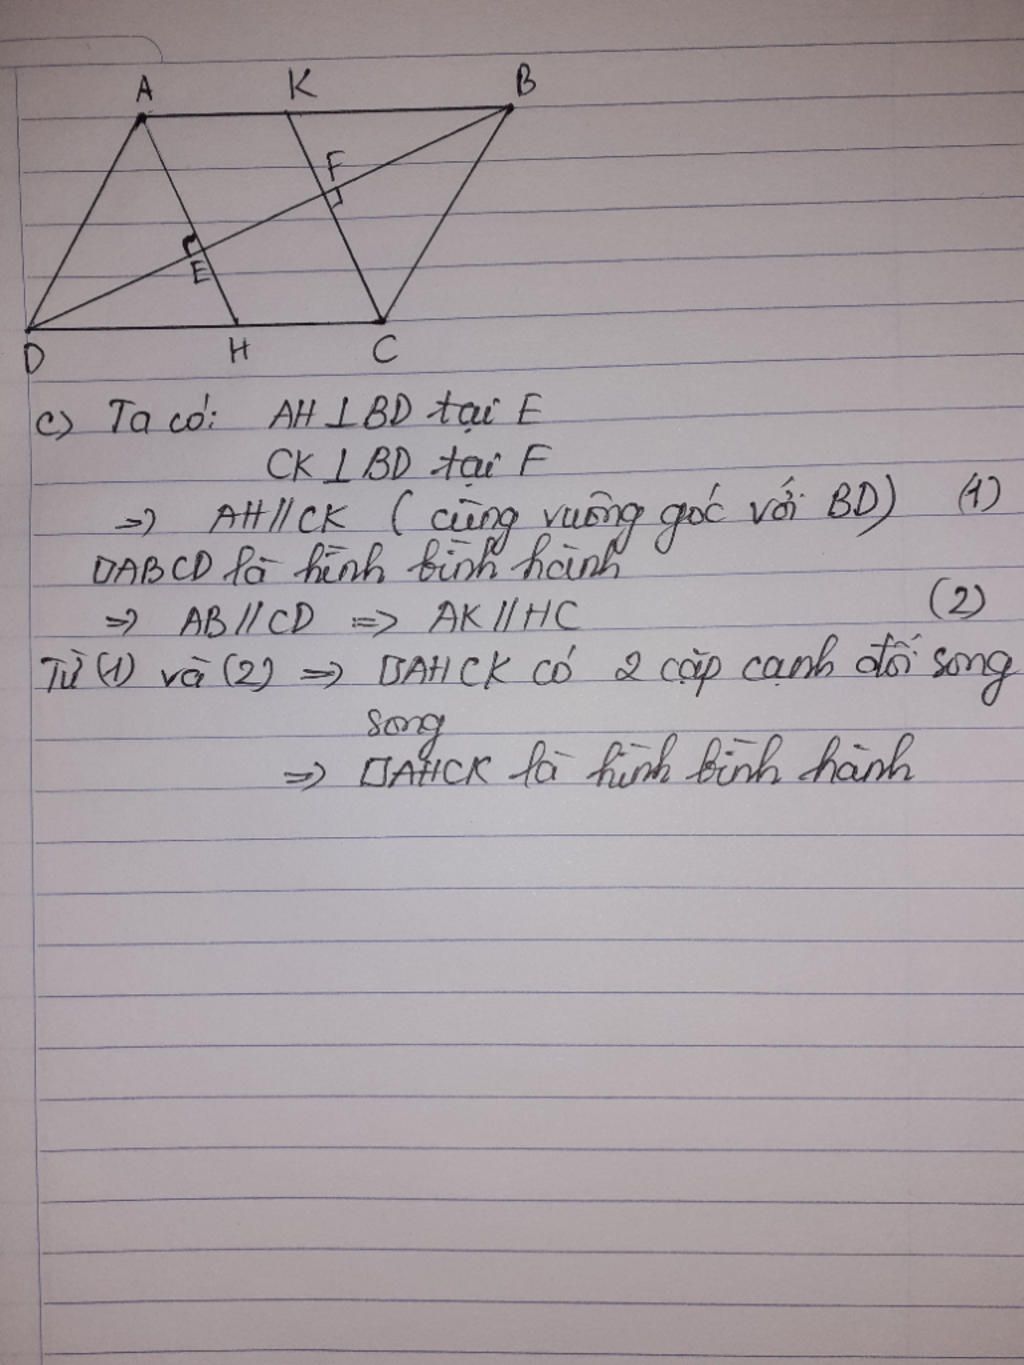 A K B
F
E
D H C
c) Ta có: AH ⊥ BD tại E
CK ⊥ BD tại F
=> AH // CK ( cùng vuông góc với BD) (1)
□ABCD là hình bình hành
=> AB // CD => AK // HC (2)
Từ (1) và (2) => □AHCK có 2 cặp cạnh đối song
song
=> □AHCK là hình bình hành